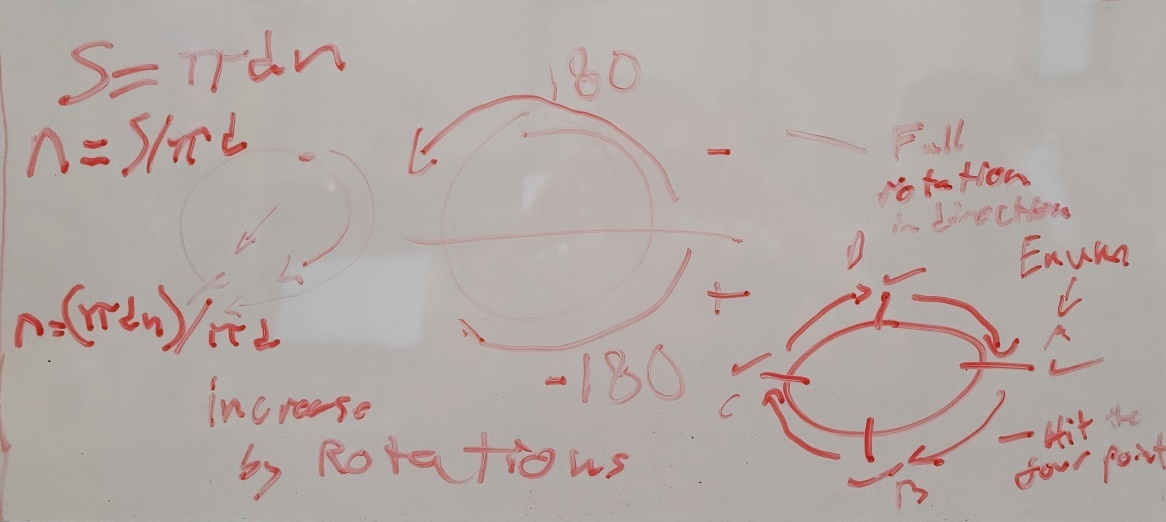 S = πdn
n = S/πd
n=(πdn)/πd
increase
by Rotations
180
-
+
-180
Full
rotation
in direction
Enum
D
A
C
B
- Hit the
four point